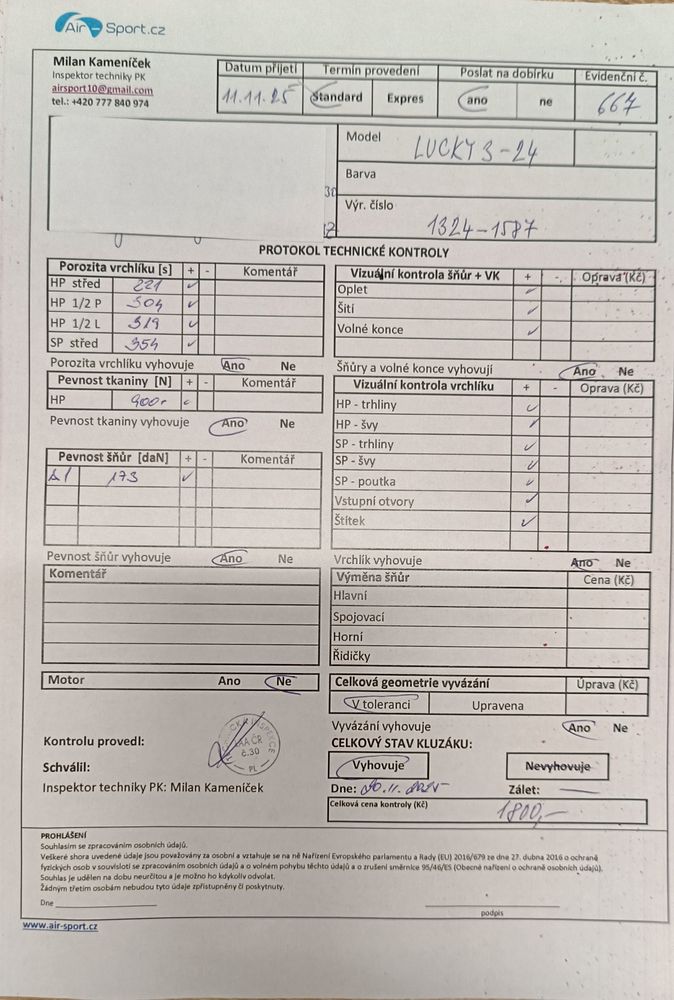 Air-Sport.cz
Milan Kameníček
Inspektor techniky PK
airsport10@gmail.com
tel.: +420 777 840 974
Datum přijetí Termín provedení Poslat na dobírku Evidenční č.
11.11.25 Standard Expres ano ne 667
Model LUCKY 3-24
Barva
30
Výr. číslo
12 1324-1587
PROTOKOL TECHNICKÉ KONTROLY
Porozita vrchlíku [s] + - Komentář
HP střed 221 ✓
HP 1/2 P 304 ✓
HP 1/2 L 319 ✓
SP střed 354 ✓
Porozita vrchlíku vyhovuje Ano Ne
Pevnost tkaniny [N] + - Komentář
HP
Pevnost tkaniny vyhovuje Ano Ne
Pevnost šňůr [daN] + - Komentář
173 ✓
Pevnost šňůr vyhovuje Ano Ne
Komentář
Motor Ano Ne
Vizuální kontrola šňůr + VK + - Oprava (Kč)
Oplet ✓
Šití ✓
Volné konce ✓
Šňůry a volné konce vyhovují Ano Ne
Vizuální kontrola vrchlíku + - Oprava (Kč)
HP - trhliny ✓
HP - švy ✓
SP - trhliny ✓
SP - švy ✓
SP - poutka ✓
Vstupní otvory ✓
Štítek ✓
Vrchlík vyhovuje Ano Ne
Výměna šňůr Cena (Kč)
Hlavní
Spojovací
Horní
Řidičky
Celková geometrie vyvázání Úprava (Kč)
V toleranci Upravena
Vyvázání vyhovuje Ano Ne
CELKOVÝ STAV KLUZÁKU:
Vyhovuje Nevyhovuje
Dne: 20.11.2025 Zálet:
Celková cena kontroly (Kč) 1800,-
Kontrolu provedl:
LAA ČR
č.30
PL
Schválil:
Inspektor techniky PK: Milan Kameníček
PROHLÁŠENÍ
Souhlasím se zpracováním osobních údajů.
Veškeré shora uvedené údaje jsou považovány za osobní a vztahuje se na ně Nařízení Evropského parlamentu a Rady (EU) 2016/679 ze dne 27. dubna 2016 o ochraně
fyzických osob v souvislosti se zpracováním osobních údajů a o volném pohybu těchto údajů a o zrušení směrnice 95/46/ES (Obecné nařízení o ochraně osobních údajů).
Souhlas je udělen na dobu neurčitou a je možno ho kdykoliv odvolat.
Žádným třetím osobám nebudou tyto údaje zpřístupněny či poskytnuty.
Dne
podpis
www.air-sport.cz